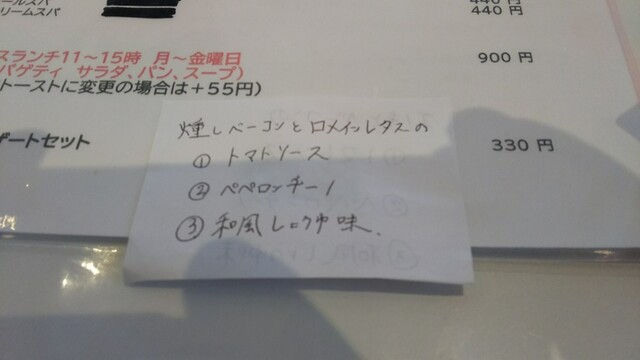 440 円
リームスパ
440 円
スランチ11～15時 月～金曜日
900 円
パゲティ サラダ、パン、スープ）
トーストに変更の場合は＋55円）
ザートセット
330 円
燻しベーコンとロメインレタスの
① トマトソース
② ペペロンチーノ
③ 和風しょうゆ味、